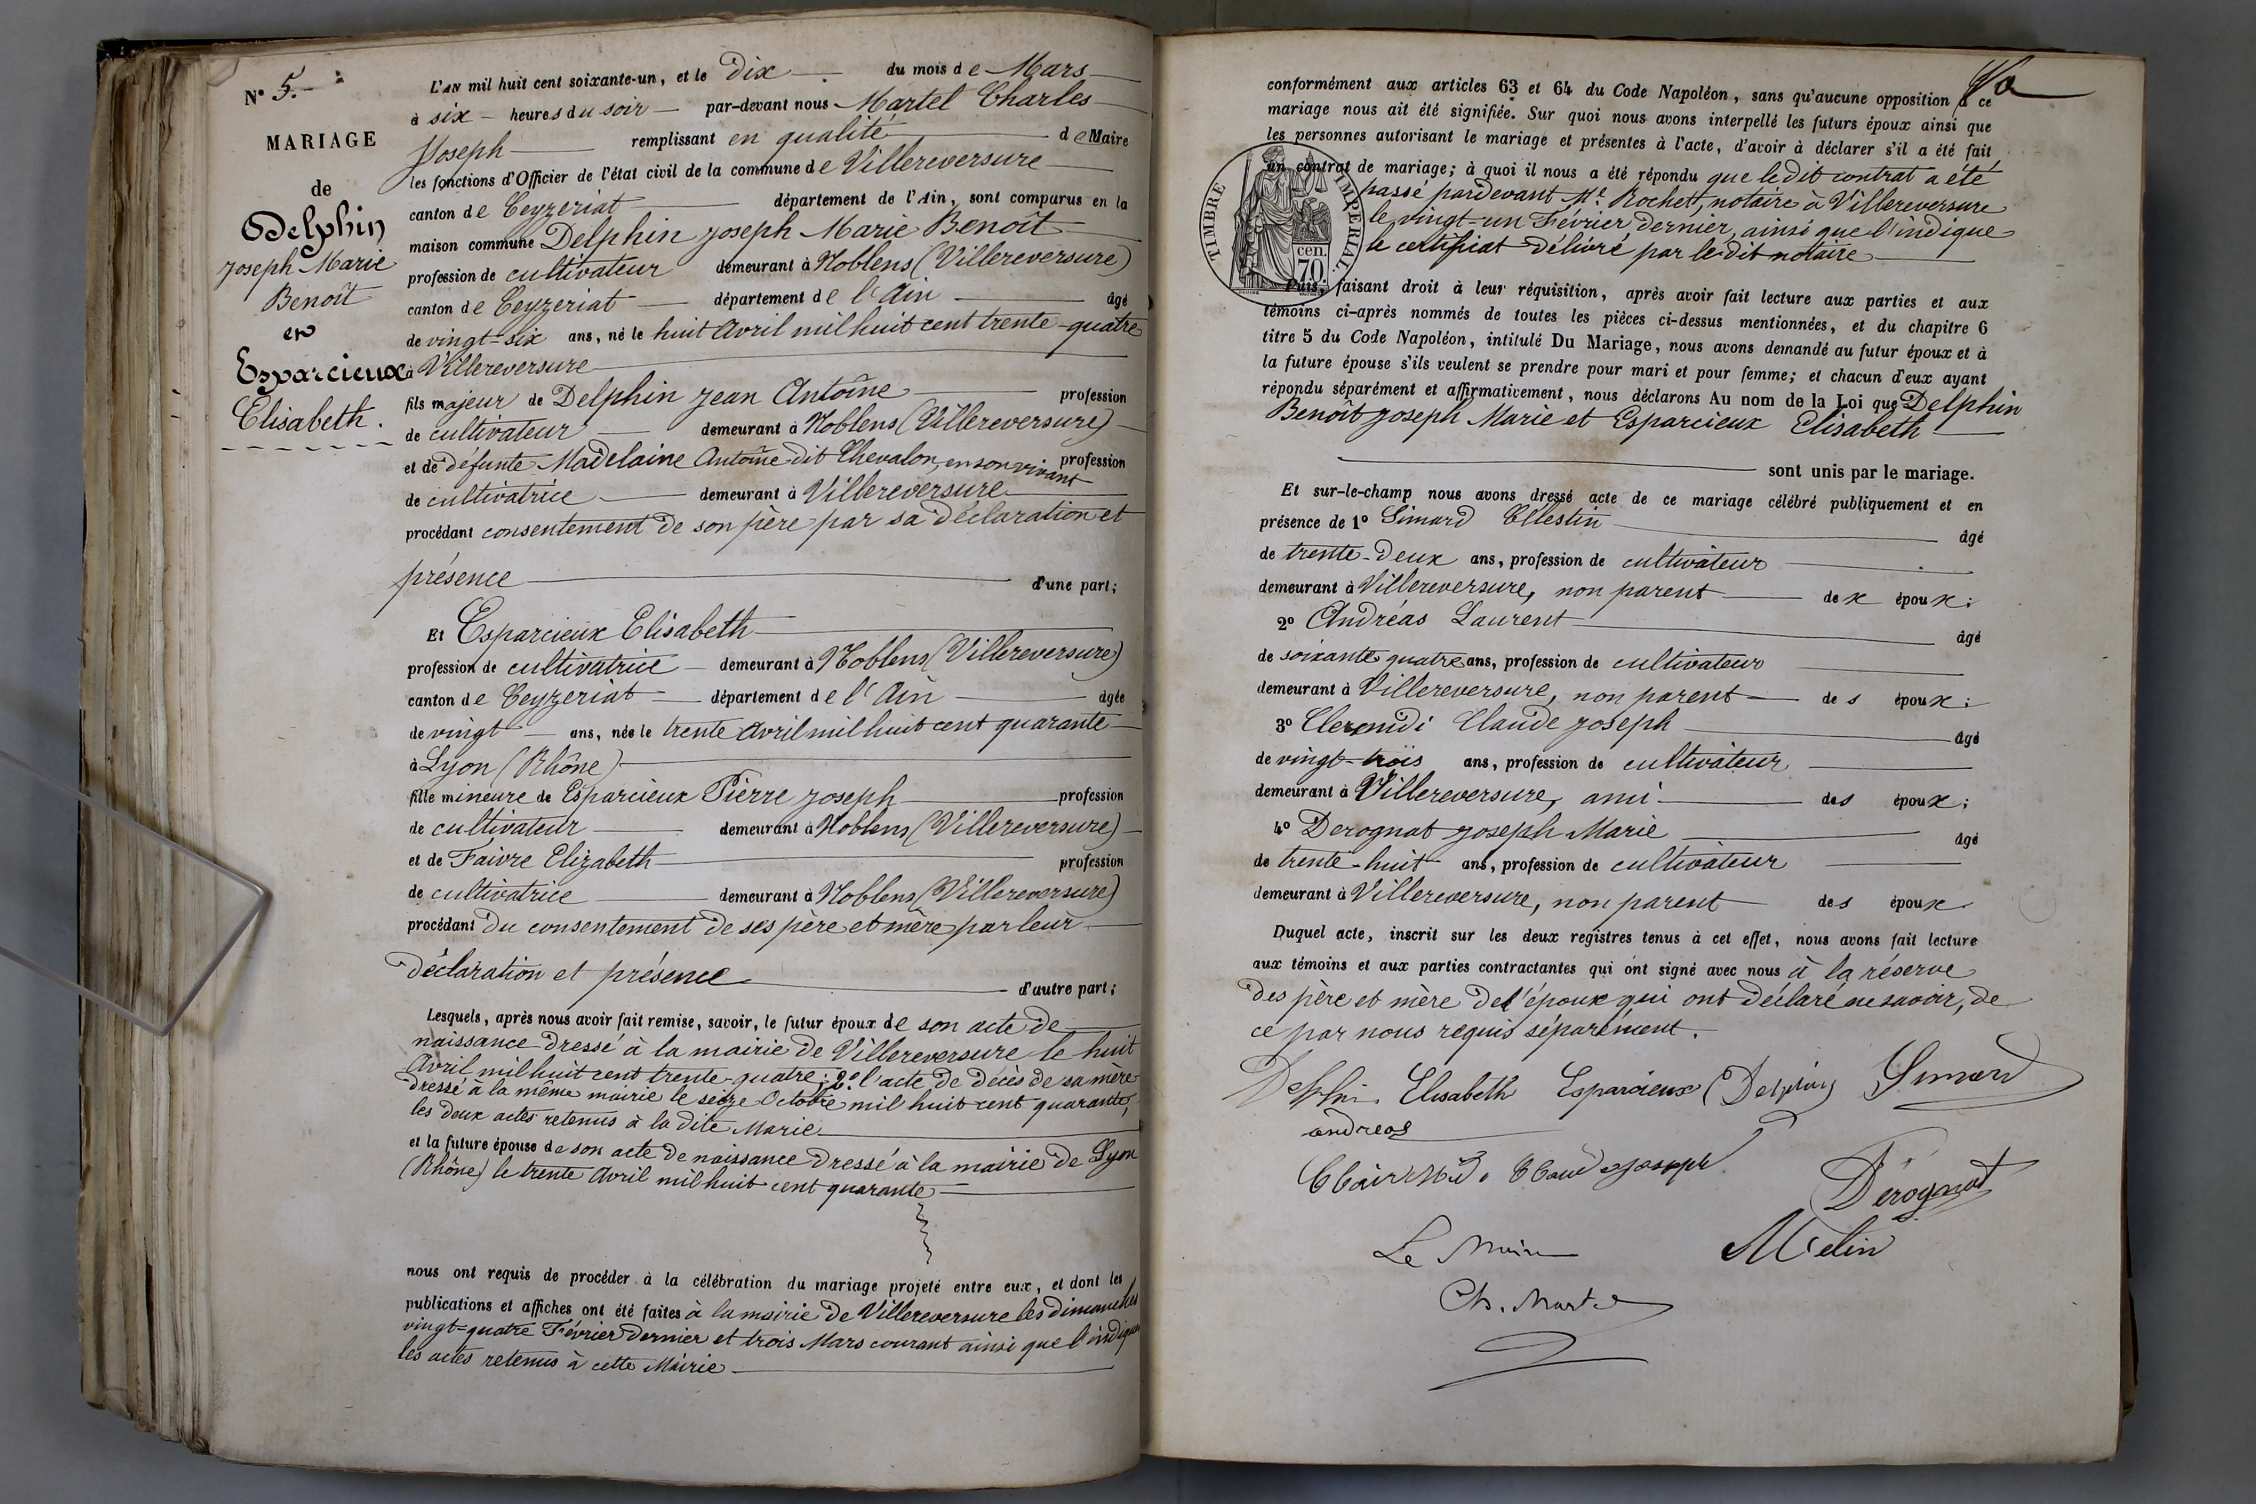 N° 5.-
MARIAGE
de
Delphin
Joseph Marie
Benoît
et
Esparcieux
Elisabeth.
L'AN mil huit cent soixante-un, et le dix du mois de Mars
à six heures du soir par-devant nous Martel Charles
Joseph remplissant en qualité de Maire
les fonctions d'Officier de l'état civil de la commune de Villereversure
canton de Ceyzeriat département de l'Ain, sont comparus en la
maison commune Delphin Joseph Marie Benoît
profession de cultivateur demeurant à Noblens (Villereversure)
canton de Ceyzeriat département de l'Ain âgé
de vingt-six ans, né le huit Avril mil huit cent trente-quatre
à Villereversure
fils majeur de Delphin Jean Antoine profession
de cultivateur demeurant à Noblens (Villereversure)
et de défunte Madelaine Antoine dit Chevalon, en son vivant profession
de cultivatrice demeurant à Villereversure
procédant consentement de son père par sa déclaration et
présence d'une part;
Et Esparcieux Elisabeth
profession de cultivatrice demeurant à Noblens (Villereversure)
canton de Ceyzeriat département de l'Ain âgée
de vingt ans, née le trente Avril mil huit cent quarante
à Lyon (Rhône)
fille mineure de Esparcieux Pierre Joseph profession
de cultivateur demeurant à Noblens (Villereversure)
et de Faivre Elizabeth profession
de cultivatrice demeurant à Noblens (Villereversure)
procédant du consentement de ses père et mère par leur
déclaration et présence d'autre part;
Lesquels, après nous avoir fait remise, savoir, le futur époux de son acte de
naissance dressé à la mairie de Villereversure le huit
Avril mil huit cent trente-quatre; 2° l'acte de décès de sa mère
dressé à la même mairie le seize Octobre mil huit cent quarante,
les deux actes retenus à la dite Marie
et la future épouse de son acte de naissance dressé à la mairie de Lyon
(Rhône) le trente Avril mil huit cent quarante
nous ont requis de procéder à la célébration du mariage projeté entre eux, et dont les
publications et affiches ont été faites à la mairie de Villereversure les dimanches
vingt-quatre Février dernier et trois Mars courant ainsi que l'indique
les actes retenus à cette Mairie
conformément aux articles 63 et 64 du Code Napoléon, sans qu'aucune opposition à ce
mariage nous ait été signifiée. Sur quoi nous avons interpellé les futurs époux ainsi que
les personnes autorisant le mariage et présentes à l'acte, d'avoir à déclarer s'il a été fait
un contrat de mariage; à quoi il nous a été répondu que le dit contrat a été
passé pardevant Me. Rochet, notaire à Villereversure
le vingt-un Février dernier, ainsi que l'indique
le certificat délivré par le dit notaire
TIMBRE IMPÉRIAL
70 cen.
Puis, faisant droit à leur réquisition, après avoir fait lecture aux parties et aux
témoins ci-après nommés de toutes les pièces ci-dessus mentionnées, et du chapitre 6
titre 5 du Code Napoléon, intitulé Du Mariage, nous avons demandé au futur époux et à
la future épouse s'ils veulent se prendre pour mari et pour femme; et chacun d'eux ayant
répondu séparément et affirmativement, nous déclarons Au nom de la Loi que Delphin
Benoît Joseph Marie et Esparcieux Elisabeth
sont unis par le mariage.
Et sur-le-champ nous avons dressé acte de ce mariage célébré publiquement et en
présence de 1° Simard Célestin âgé
de trente-deux ans, profession de cultivateur
demeurant à Villereversure, non parent dex époux;
2° Andréas Laurent âgé
de soixante quatre ans, profession de cultivateur
demeurant à Villereversure, non parent des époux;
3° Clermidi Claude Joseph âgé
de vingt-trois ans, profession de cultivateur
demeurant à Villereversure, ami des époux;
4° Derognat Joseph Marie âgé
de trente-huit ans, profession de cultivateur
demeurant à Villereversure, non parent des époux
Duquel acte, inscrit sur les deux registres tenus à cet effet, nous avons fait lecture
aux témoins et aux parties contractantes qui ont signé avec nous à la réserve
des père et mère de l'époux qui ont déclaré ne savoir, de
ce par nous requis séparément.
Delphin Elisabeth Esparcieux (Delphin) Simard
andreas
Claude joseph
Dérognat
Le Maire
Ch. Martel